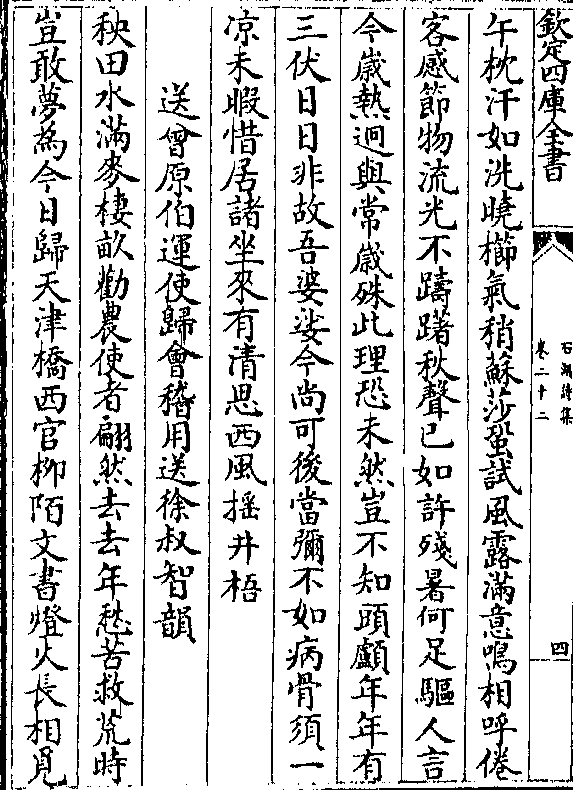 欽定四庫全書
石湖詩集
卷二十二
四
午枕汗如洗曉櫛氣稍蘇莎蛩試風露滿意鳴相呼倦
客感節物流光不躊躇秋聲已如許殘暑何足驅人言
今嵗熱迥與常嵗殊此理恐未然豈不知頭顱年年有
三伏日日非故吾婆娑今尚可後當彌不如病骨須一
凉未暇惜居諸坐來有清思西風揺井梧
送曾原伯運使歸會稽用送徐叔智韻
秧田水滿麥棲畝勸農使者翩然去去年愁苦救荒時
豈敢夢為今日歸天津橋西官柳陌文書燈火長相覓